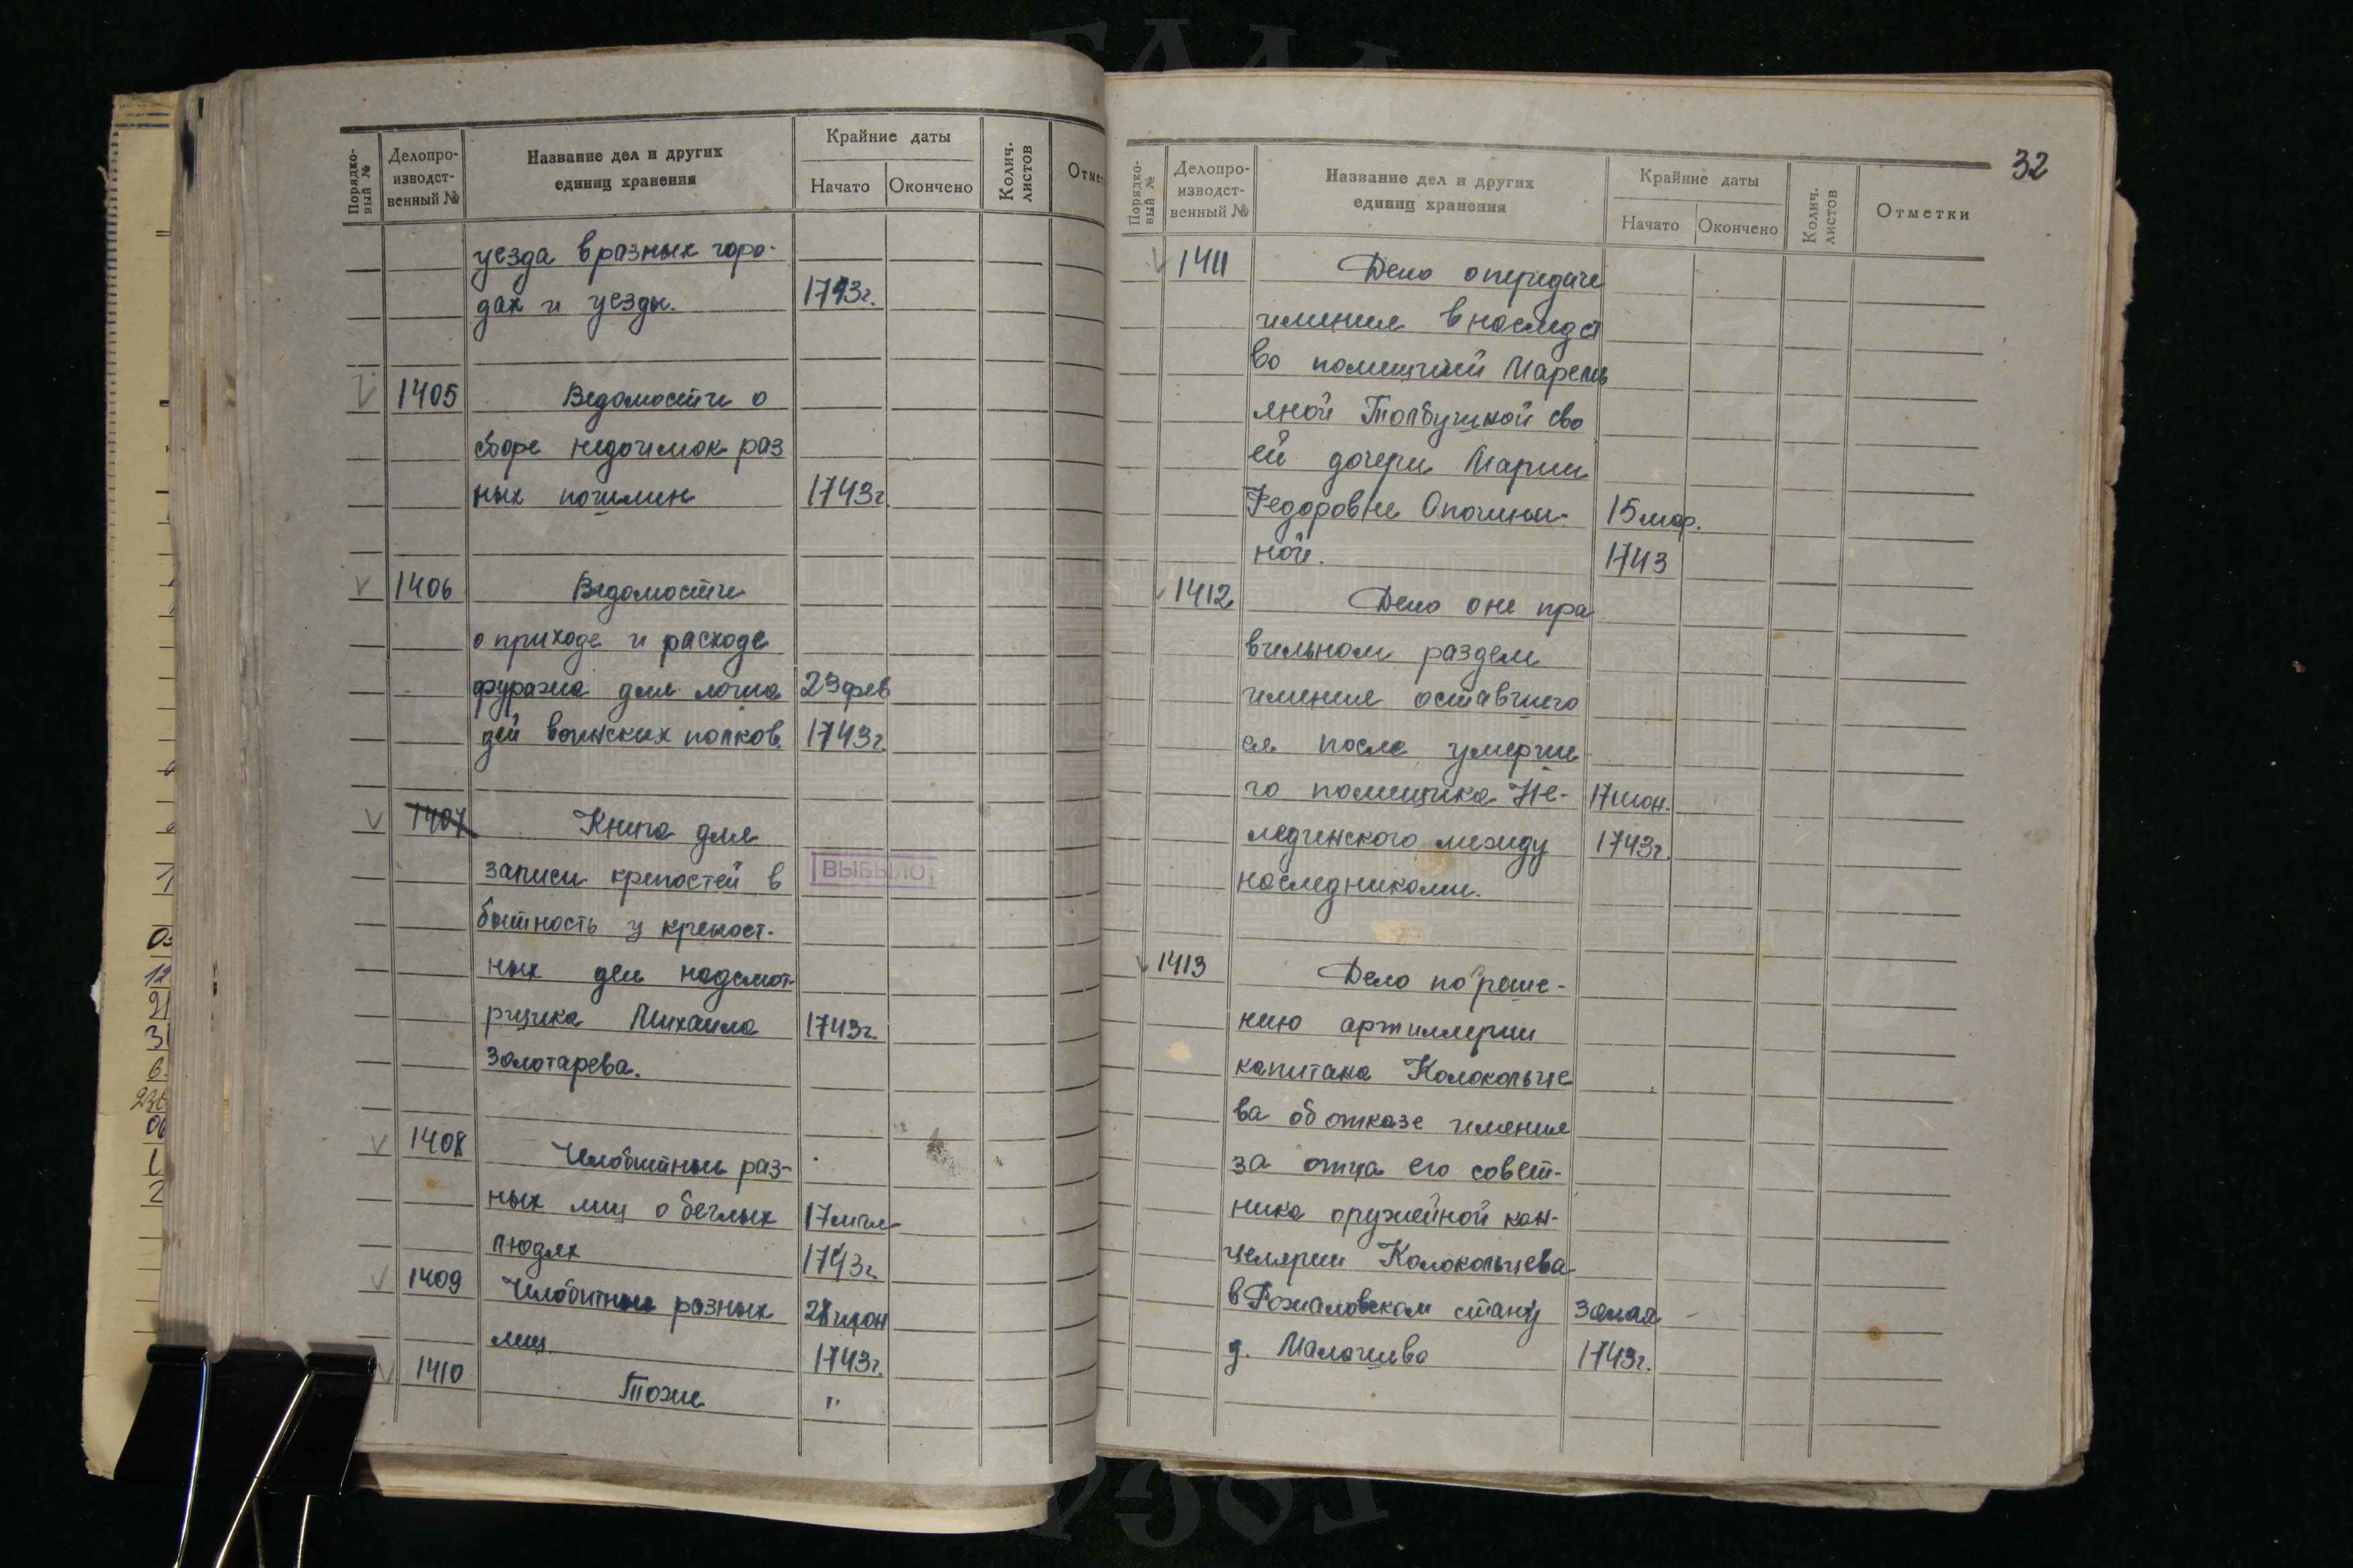 Порядко-
вый №
Делопро-
изводст-
венный №
Название дел и других
единиц хранения
Крайние даты
Начато
Окончено
Колич.
листов
Отмет
уезда в разных горо-
дах и уезды. 1743г.
1405 Ведомости о
сборе недоимок раз
ных пошлин 1743г
1406 Ведомости
о приходе и расходе
фуража для лоша 23 фев
дей воинских полков 1743г.
1407 Книга для
записи крепостей в ВЫБЫЛО
бытность у крепост-
ных дел надсмот-
рщика Михаила 1743г.
Золотарева.
1408 Челобитные раз-
ных лиц о беглых
людях 1743г.
1409 Челобитные разных 28 июн
лиц. 1743г.
1410 Тоже "
32
Порядко-
вый №
Делопро-
изводст-
венный №
Название дел и других
единиц хранения
Крайние даты
Начато
Окончено
Колич.
листов
Отметки
1411 Дело о передаче
имения в наследст
во помещицей
Толбузиной сво
ей дочери Марии
Федоровне Опочини- 15 мар.
ной. 1743
1412 Дело о не пра
вильном разделе
имения оставшего
ся после умерше
го помещика Не- 17 июн.
лединского между 1743г.
наследниками.
1413 Дело по реше-
нию артиллерии
капитана Колокольце
ва об отказе имения
за отца его совет-
ника оружейной кан-
целярии Колокольцева
в Рожаловском стану 30 мая
д. Малогиева 1743г.